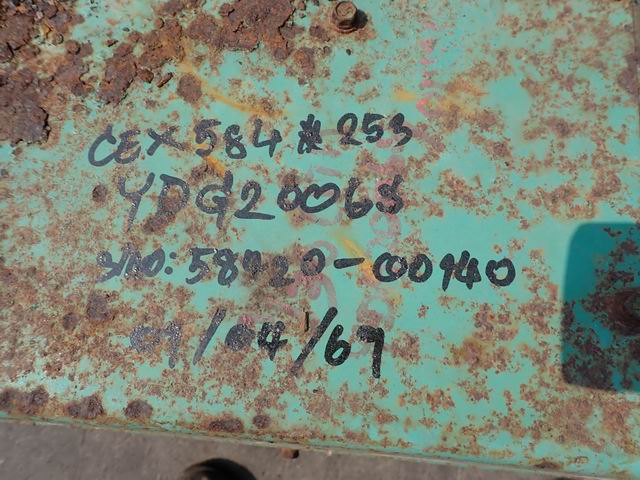 CEX 584 # 253
YDG2006S
S/NO: 58420-00940
09/04/67